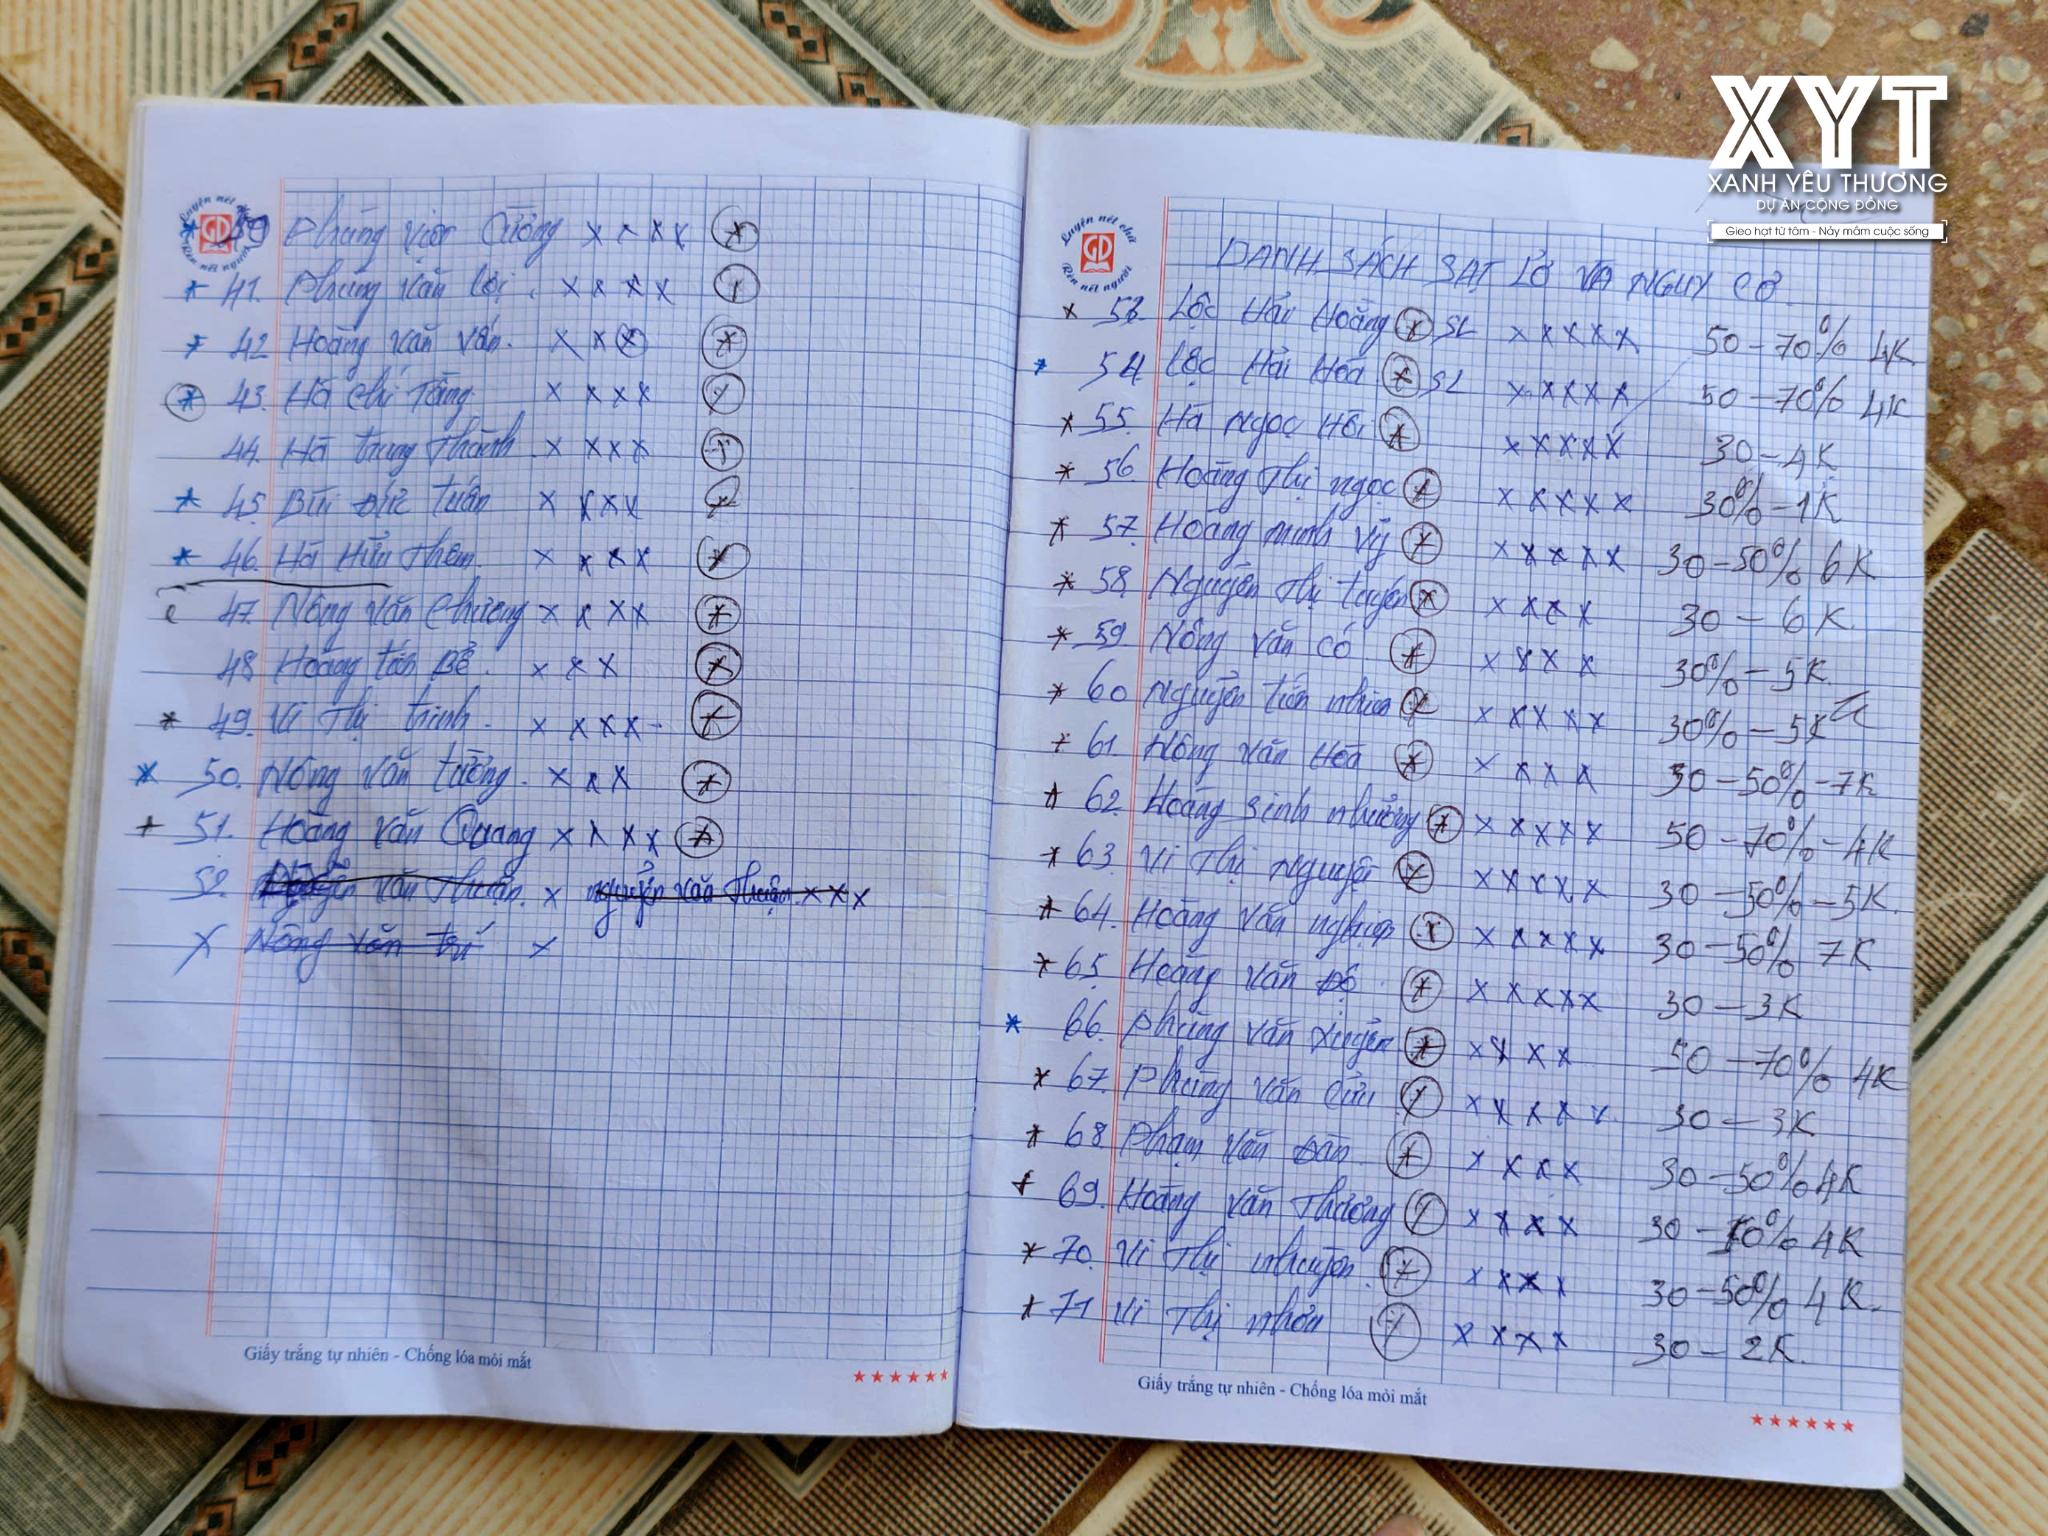 XYT
XANH YÊU THƯƠNG
DỰ ÁN CỘNG ĐỒNG
Gieo hạt từ tâm - Nảy mầm cuộc sống
Luyện nét chữ
GD
Rèn nết người
Phùng Cường x x x x
41. Phùng Văn Lợi. x x x x
42 Hoàng Văn x x x
43. Hà Chí Tăng. x x x x
44. Hà Trung Thành. x x x x
45. Bùi Đức Tuấn x x x x
46. Hà Hữu Thêm. x x x x
47. Nông Văn Chương x x x x
48 Hoàng Bể. x x x
49. Vi Thị Trinh. x x x x -
50. Nông Văn Tường. x x x
51. Hoàng Văn Quang x x x x
52. Nguyễn Văn Thuận. x Nguyễn Văn Thuận. x x x
X Nông Văn Trí x
Giấy trắng tự nhiên - Chống lóa mỏi mắt
Luyện nét chữ
GD
Rèn nết người
DANH SÁCH SẠT LỞ VÀ NGUY CƠ
53. Lộc Hoàng SL x x x x x 50 - 70% 4K
54. Lộc Hải Hoá SL x x x x x 50 - 70% 4K
55. Hà Ngọc x x x x x 30 - 4K
56. Hoàng Thị Ngọc x x x x x 30% - 1K
57. Hoàng Minh Vỹ x x x x x 30 - 50% 6K
58. Nguyễn Thị Tuyến x x x x 30 - 6K.
59. Nông Văn Có x x x x 30% - 5K.
60 Nguyễn x x x x x 30% - 5K
61. Nông Văn Hoá x x x x 30 - 50% - 7K
62. Hoàng Sinh Nhưỡng x x x x x 50 - 70% - 4K
63. Vi Thị Nguyệt x x x x x 30 - 50% - 5K.
64. Hoàng Văn x x x x x 30 - 50% 7K
65. Hoàng Văn Độ x x x x x 30 - 3K
66. Phùng Văn x x x x 50 - 70% 4K
67. Phùng Văn Cửu x x x x x 30 - 3K
68. Phạm Văn x x x x 30 - 50% 4K
69. Hoàng Văn Thương x x x x 30 - 4K
70. Vi Thị x x x x 30 - 50% 4K.
71 Vi Thị x x x x 30 - 2K.
Giấy trắng tự nhiên - Chống lóa mỏi mắt